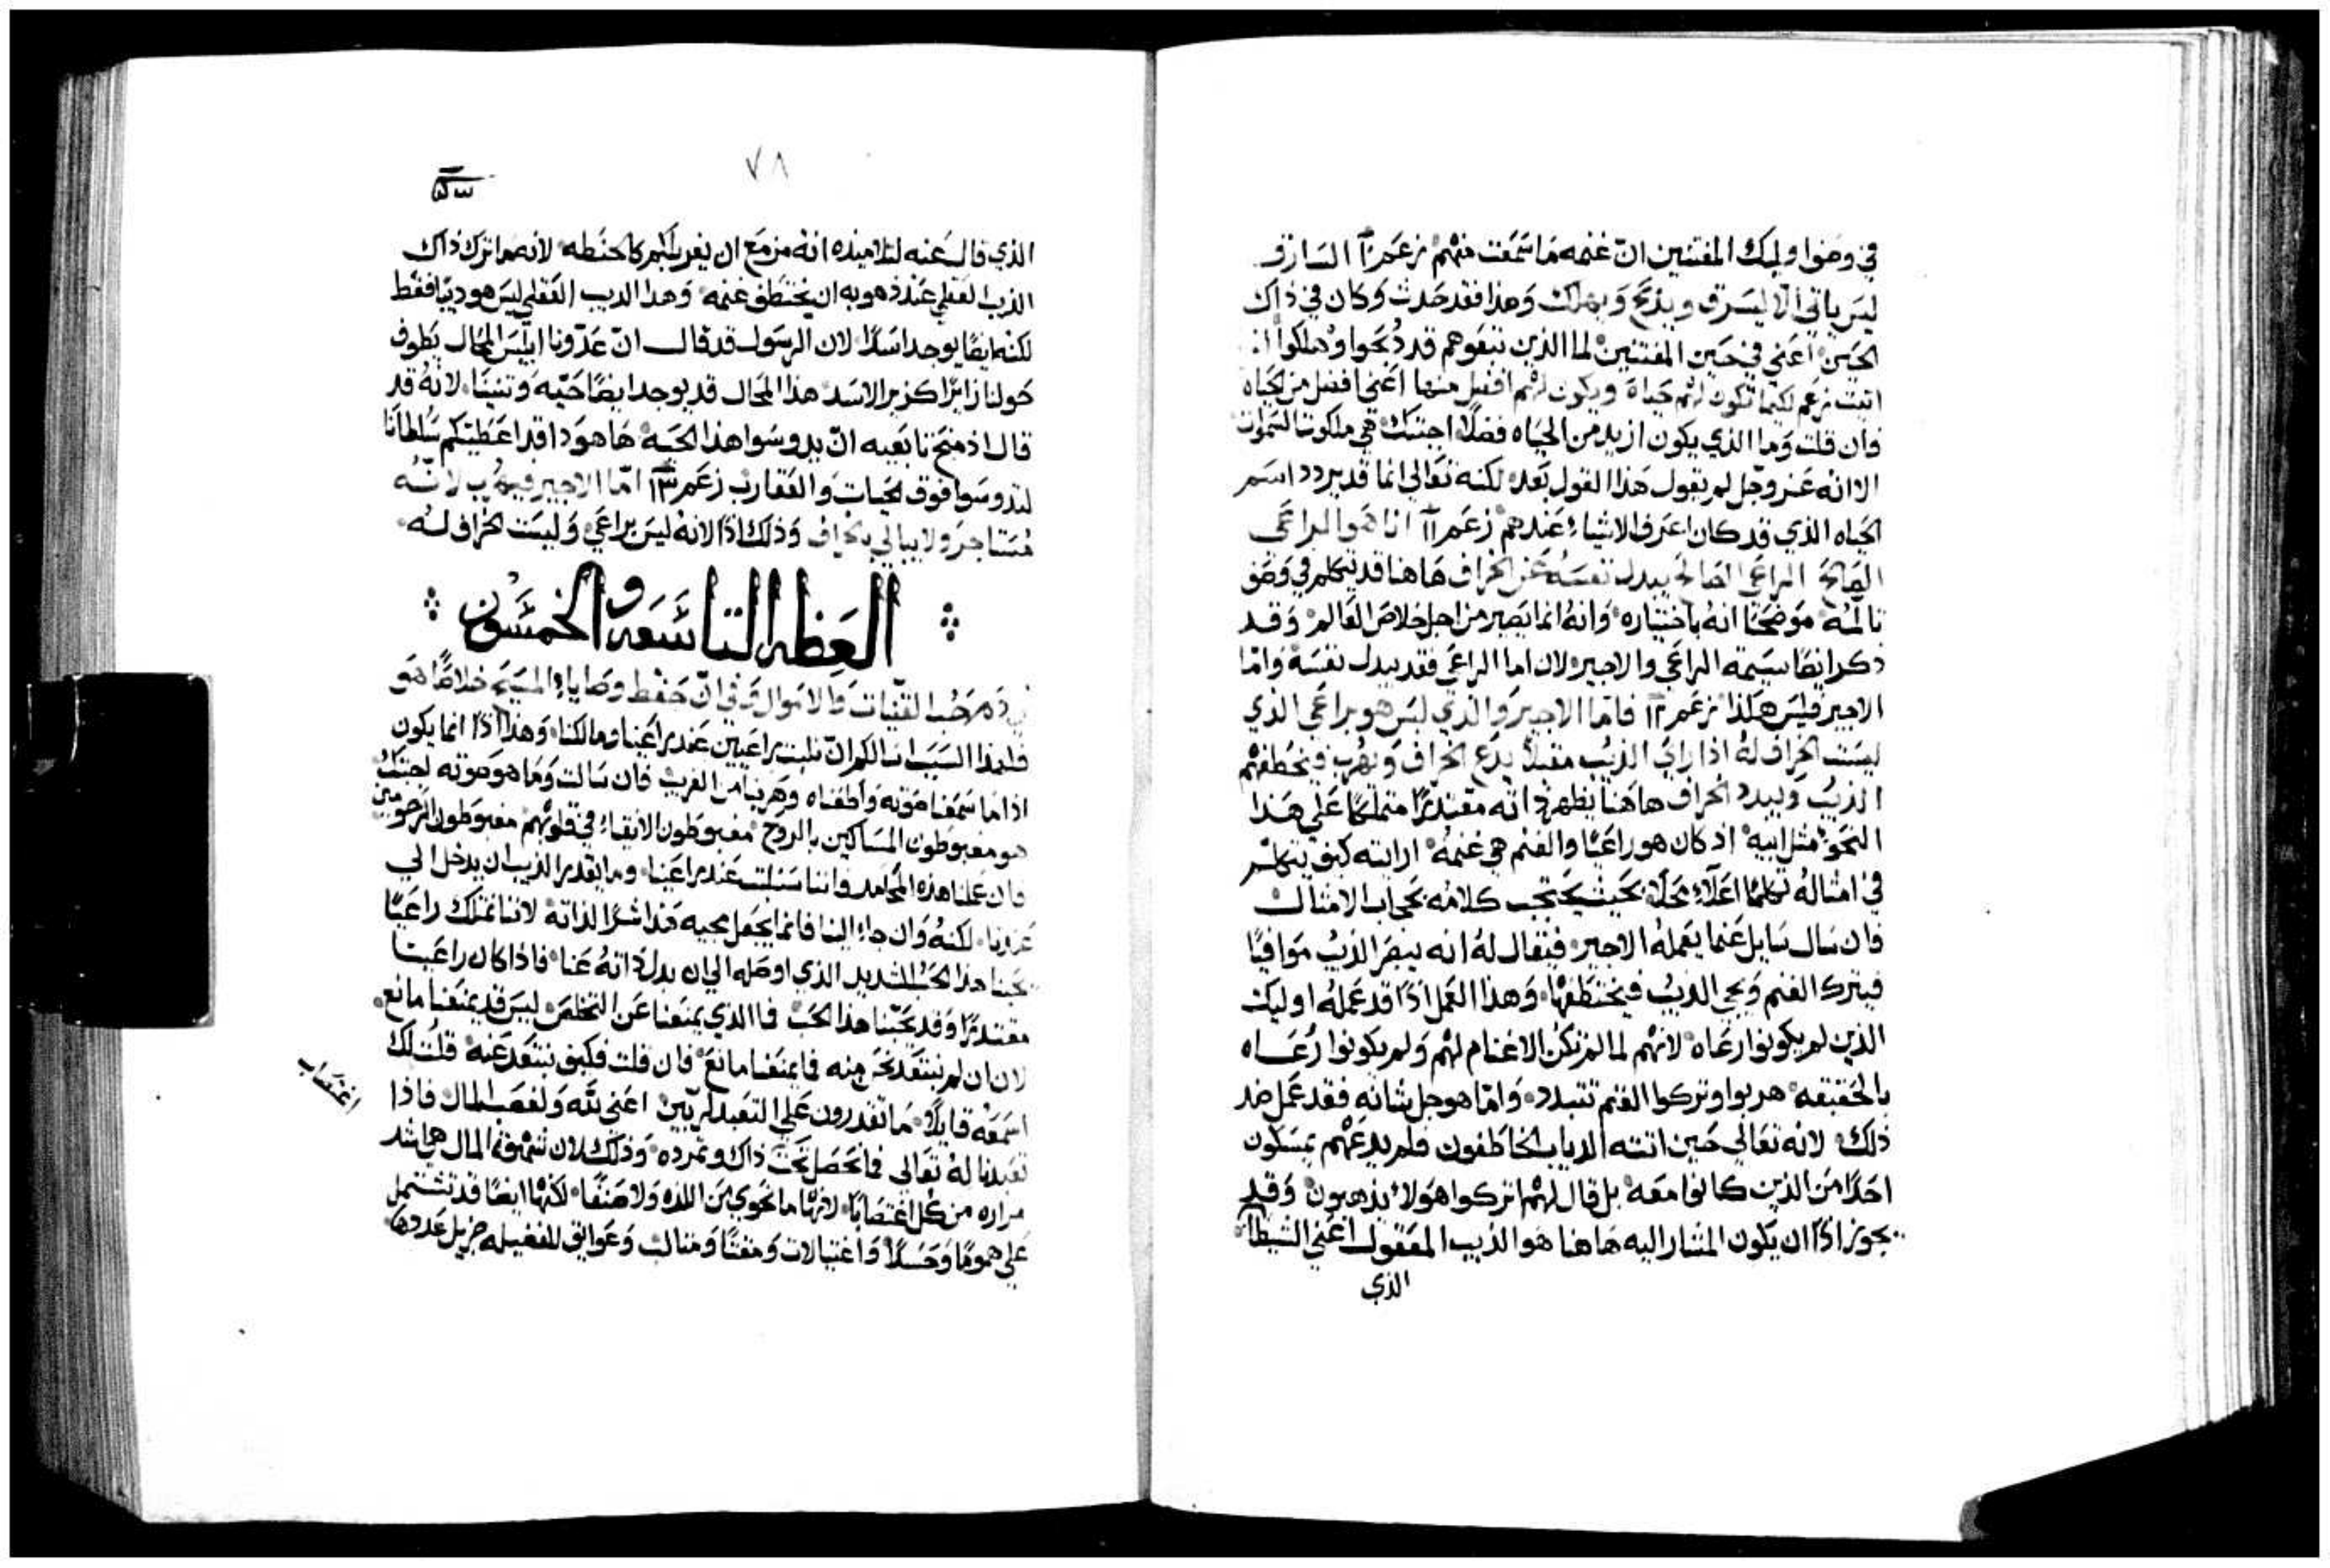 في وصف اوليك المفتنين ان غنمه ما سمعت منهم زعم ١٠ السارق
ليس ياتي الا ليسرق ويذبح ويهلك وهذا فقد حدث وكان في ذاك
الحين اعني في حين المفتنين لما الذين تبعوهم قد ذبحوا وهلكوا انا
اتيت زعم لكيما تكون لهم حياة ويكون لهم افضل منها اعني افضل من الحياه
فان قلت وما الذي يكون ازيد من الحياه فضلا اجبتك هي ملكوت السموات
الا انه عز وجل لم يقول هذا القول بعد لكنه تعالى انما قد يردد اسم
الحياه الذي قد كان اعرف الاشياء عندهم زعم ١١ انا هو الراعي
الصالح الراعي الصالح يبدل نفسه عن الخراف هاهنا قد يتكلم في وصف
تالمه موضحا انه باختياره وانه انما يصير من اجل خلاص العالم وقد
ذكر ايضا سيمة الراعي والاجير لان اما الراعي فقد يبدل نفسه واما
الاجير فليس هكذا زعم ١٢ فاما الاجير والذي ليس هو براعي الذي
ليست الخراف له اذا راى الذيب مقبلا يدع الخراف ويهرب فيخطفهم
الذيب ويبدد الخراف هاهنا يظهر ذاته مقتدرا متملكا على هذا
النحو مثل ابيه اذ كان هو راعيا والغنم هي غنمه ارايته كيف يتكلم
في امثاله تكلما اعلاء محلا بحيث يحتجب كلامه بحجاب الامثال
فان سال سايل عما يعمله الاجير فيقال له انه يبصر الذيب موافيا
فيترك الغنم ويجي الذيب فيختطفها وهذا العمل اذا قد عمله اوليك
الذين لم يكونوا رعاه لانهم لما لم تكن الاغنام لهم ولم يكونوا رعاه
بالحقيقه هربوا وتركوا الغنم تتبدد واما هو جل شانه فقد عمل ضد
ذلك لانه تعالى حين اتته الدياب الخاطفون فلم يدعهم يمسكون
احدا من الذين كانوا معه بل قال لهم اتركوا هولاء يذهبون وقد
يجوز اذا ان يكون المشار اليه هاهنا هو الذيب المعقول اعني الشيطان
الذي
٧٨
الذي قال عنه لتلاميذه انه مزمع ان يغربلكم كالحنطه لانه ما ترك ذاك
الذيب العقلي عند ذهوبه ان يختطف غنمه وهذا الذيب العقلي ليس هو ديبا فقط
لكنه ايضا يوجد اسدا لان الرسول قد قال ان عدونا ابليس المحال يطوف
حولنا زايرا كزير الاسد هذا المحال قد يوجد ايضا حيه وتنينا لانه قد
قال اذ منح تابعيه ان يدوسوا هذا الحيه ها هوذا قد اعطيتكم سلطانا
لتدوسوا فوق الحيات والعقارب زعم ١٣ اما الاجير فيهرب لانه
مستاجر ولا يبالي بالخراف وذلك اذا لانه ليس براعي وليست الخراف له
العظه التاسعه والخمسون
في ذم حب القنيات والاموال وفي ان حفظ وصايا المسيح خلاصا هو
فلهذا السبب اسالكم ان نلبث راعيين عند راعينا ومالكنا وهذا اذا انما يكون
اذا ما سمعنا صوته واطعناه وهربنا من الغريب فان سالت وما هو صوته اجبتك
هو مغبوطون المساكين بالروح مغبوطون الانقياء في قلوبهم مغبوطون الرحومين
فان عملنا هذه المحامد فاننا سنلبث عند راعينا وما يقدر الذيب ان يدخل الي
عندنا لكنه وان جاء الينا فانما يجعل مجيه هذا شرا لذاته لاننا نمتلك راعيا
يحبنا هذا الحب الشديد الذي اوصله الي ان بدل ذاته عنا فاذا كان راعينا
مقتدرا وقد يحبنا هذا الحب فما الذي يمنعنا عن التخلص ليس قد يمنعنا مانع
لان ان لم نبتعد نحن منه فما يمنعنا مانع فان قلت فكيف نبتعد عنه قلت لك
اسمعه قايلا ما تقدرون على التعبد لربين اعني لله ولغصب المال فاذا
تعبدنا له تعالى فما نحصل تحت ذاك وتمرده وذلك لان شهوة المال هي اشد
مراره من كل اغتصابا لانها ما تحوي من اللذه ولا صنفا لكنها ايضا قد تشتمل
على هموما وحسدا واغتيالات ومقتا ومثالب وعوايق للفضيله جزيل عددها
اغتصاب